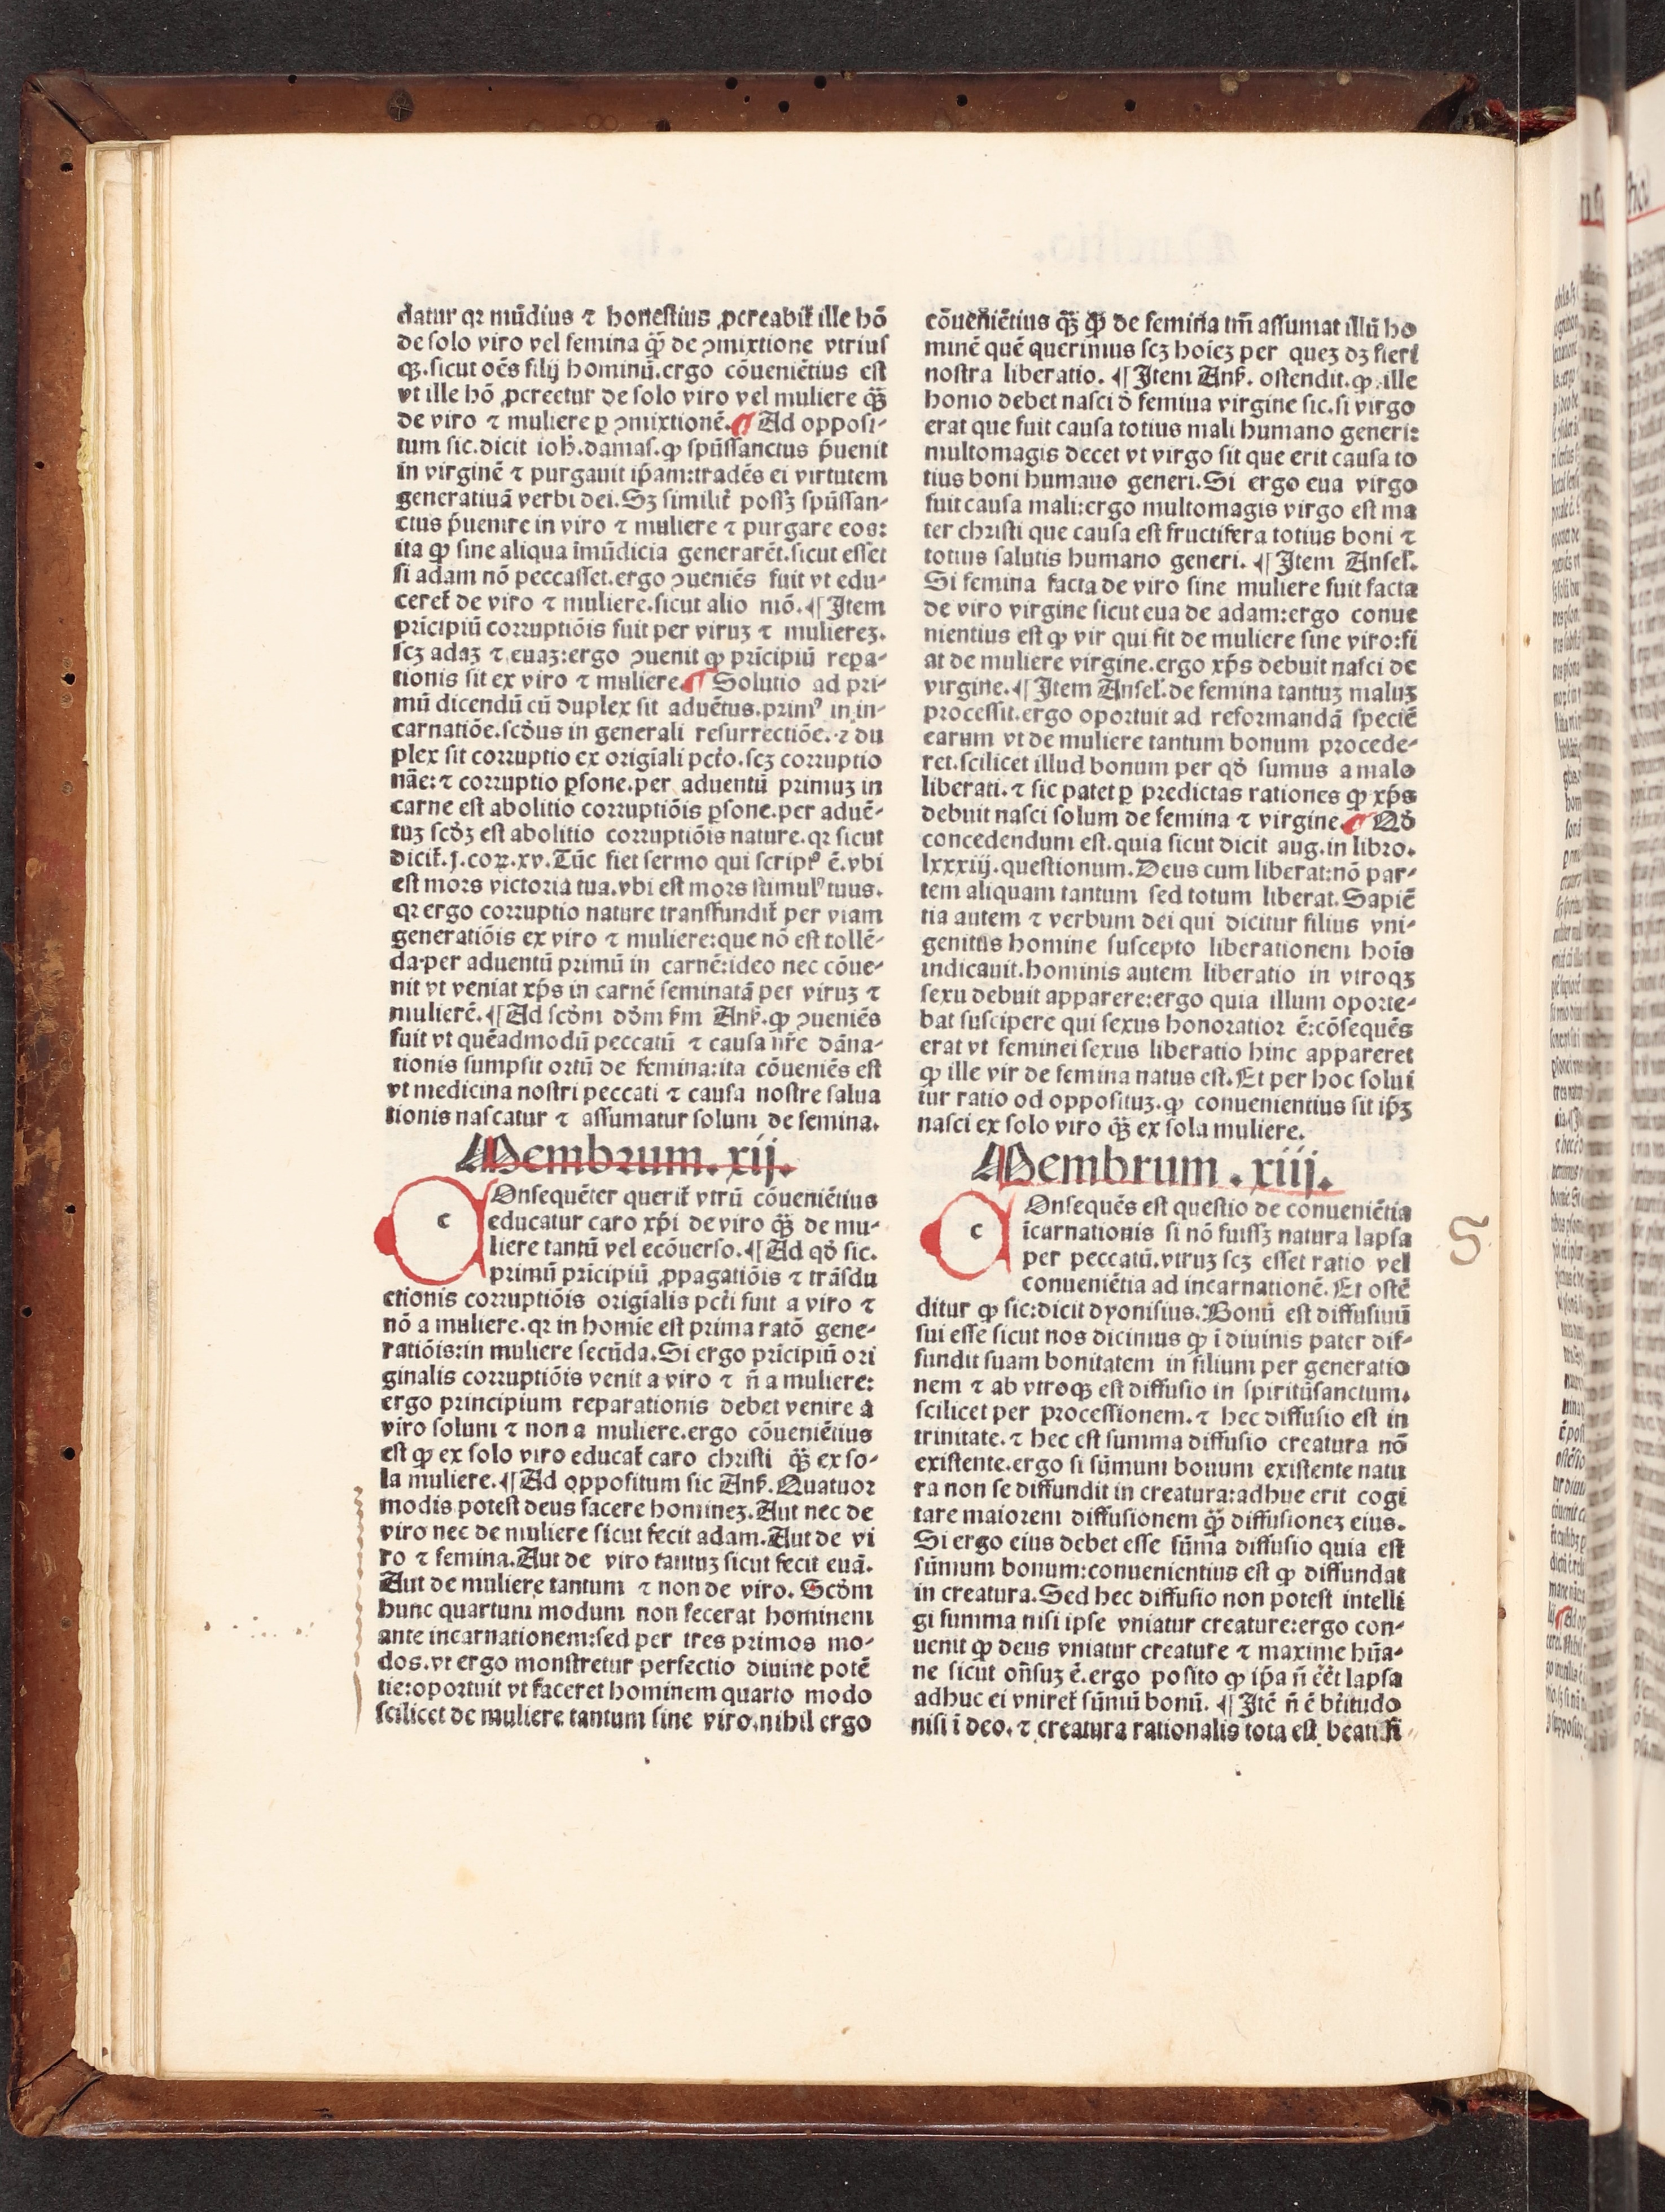 datur qꝛ mūdius ⁊ honestius ꝓcreabit᷑ ille hō
de solo viro vel femina q̄ꝫ de ꝯmixtione vtrius
qꝫ. sicut oēs filij hominū. ergo cōueniētius est
vt ille hō ꝓcreetur de solo viro vel muliere q̄ꝫ
de viro ⁊ muliere ꝑ ꝯmixtionē. ¶ Ad opposi-
tum sic. dicit ioh̄. damaſ. ꝙ spūssanctus p̄uenit
in virginē ⁊ purgauit ip̄am: tradēs ei virtutem
generatiuā verbi dei. Sꝫ similit᷑ possꝫ spūssan-
ctus p̄uenire in viro ⁊ muliere ⁊ purgare eos:
ita ꝙ sine aliqua īmūdicia generarēt. sicut esset
si adam nō peccasset. ergo ꝯueniēs fuit vt edu-
ceret᷑ de viro ⁊ muliere. sicut alio mō. ¶ Item
prīcipiū corruptiōis fuit per viruꝫ ⁊ muliereꝫ.
scꝫ adaꝫ ⁊ euaꝫ: ergo ꝯuenit ꝙ prīcipiū repa-
tionis sit ex viro ⁊ muliere. ¶ Solutio ad pri-
mū dicendū cū duplex sit aduētus. primꝰ in in-
carnatiōe. scd̄us in generali resurrectiōe. ⁊ du
plex sit corruptio ex origīali pctō. scꝫ corruptio
nāe: ⁊ corruptio ꝑsone. per aduentū primuꝫ in
carne est abolitio corruptiōis ꝑsone. per aduē-
tuꝫ scd̄ꝫ est abolitio corruptiōis nature. qꝛ sicut
dicit᷑. j. coꝝ. xv. Tūc fiet sermo qui scriptꝰ ē. vbi
est mors victoria tua. vbi est mors stimulꝰ tuus.
qꝛ ergo corruptio nature transfundit᷑ per viam
generatiōis ex viro ⁊ muliere: que nō est tollē-
da per aduentū primū in carnē: ideo nec cōue-
nit vt veniat xp̄s in carnē seminatā per viruꝫ ⁊
mulierē. ¶ Ad scd̄m dd̄m ẜm Anẜ. ꝙ ꝯueniēs
fuit vt quēadmodū peccatū ⁊ causa nr̄e dāna-
tionis sumpsit ortū de femina: ita cōueniēs est
vt medicina nostri peccati ⁊ causa nostre salua
tionis nascatur ⁊ assumatur solum de femina.
Membrum. xij.
c
Onsequēter querit᷑ vtrū cōueniētius
educatur caro xp̄i de viro q̄ꝫ de mu-
liere tantū vel ecōuerso. ¶ Ad qd̄ sic.
primū prīcipiū ꝓpagatiōis ⁊ trāsdu
ctionis corruptiōis origīalis pcti fuit a viro ⁊
nō a muliere. qꝛ in homīe est prima ratō gene-
ratiōis: in muliere secūda. Si ergo prīcipiū ori
ginalis corruptiōis venit a viro ⁊ n̄ a muliere:
ergo principium reparationis debet venire a
viro solum ⁊ non a muliere. ergo cōueniētius
est ꝙ ex solo viro educat᷑ caro christi q̄ꝫ ex so-
la muliere. ¶ Ad oppositum sic Anẜ. Quatuor
modis potest deus facere homineꝫ. Aut nec de
viro nec de muliere sicut fecit adam. Aut de vi
ro ⁊ femina. Aut de viro tantuꝫ sicut fecit euā.
Aut de muliere tantum ⁊ non de viro. Scd̄m
hunc quartum modum non fecerat hominem
ante incarnationem: sed per tres primos mo-
dos. vt ergo monstretur perfectio diuine potē
tie: oportuit vt faceret hominem quarto modo
scilicet de muliere tantum sine viro. nihil ergo
cōueniētius q̄ꝫ ꝙ de femina tm̄ assumat illū ho
minē quē querimus scꝫ hoīeꝫ per queꝫ dꝫ fieri
nostra liberatio. ¶ Item Anẜ. ostendit. ꝙ ille
homo debet nasci d̄ femiua virgine sic. si virgo
erat que fuit causa totius mali humano generi:
multomagis decet vt virgo sit que erit causa to
tius boni humano generi. Si ergo eua virgo
fuit causa mali: ergo multomagis virgo est ma
ter christi que causa est fructifera totius boni ⁊
totius salutis humano generi. ¶ Item Anseł.
Si femina facta de viro sine muliere fuit facta
de viro virgine sicut eua de adam: ergo conue
nientius est ꝙ vir qui fit de muliere sine viro: fi
at de muliere virgine. ergo xp̄s debuit nasci de
virgine. ¶ Item Anseł. de femina tantuꝫ maluꝫ
processit. ergo oportuit ad reformandā speciē
earum vt de muliere tantum bonum procede-
ret. scilicet illud bonum per qd̄ sumus a malo
liberati. ⁊ sic patet ꝑ predictas rationes ꝙ xp̄s
debuit nasci solum de femina ⁊ virgine. ¶ Qd̄
concedendum est. quia sicut dicit aug. in libro.
lxxxiij. questionum. Deus cum liberat: nō par-
tem aliquam tantum sed totum liberat. Sapiē
tia autem ⁊ verbum dei qui dicitur filius vni-
genitus homine suscepto liberationem hoīs
indicauit. hominis autem liberatio in vtroqꝫ
sexu debuit apparere: ergo quia illum oporte-
bat suscipere qui sexus honoratior ē: cōsequēs
erat vt feminei sexus liberatio hinc appareret
ꝙ ille vir de femina natus est. Et per hoc solui
tur ratio od opposituꝫ. ꝙ conuenientius sit ip̄ꝫ
nasci ex solo viro q̄ꝫ ex sola muliere.
Membrum. xiij.
c
Onsequēs est questio de conueniētia
īcarnationis si nō fuissꝫ natura lapsa
per peccatū. vtruꝫ scꝫ esset ratio vel
conueniētia ad incarnationē. Et ostē
ditur ꝙ sic: dicit dyonisius. Bonū est diffusiuū
sui esse sicut nos dicimus ꝙ ī diuinis pater dif-
fundit suam bonitatem in filium per generatio
nem ⁊ ab vtroqꝫ est diffusio in spiritūsanctum.
scilicet per processionem. ⁊ hec diffusio est in
trinitate. ⁊ hec est summa diffusio creatura nō
existente. ergo si sūmum bonum existente natu
ra non se diffundit in creatura: adhuc erit cogi
tare maiorem diffusionem q̄ꝫ diffusioneꝫ eius.
Si ergo eius debet esse sūma diffusio quia est
sūmum bonum: conuenientius est ꝙ diffundat
in creatura. Sed hec diffusio non potest intelli
gi summa nisi ipse vniatur creature: ergo con-
uenit ꝙ deus vniatur creature ⁊ maxime hūa-
ne sicut on̄suꝫ ē. ergo posito ꝙ ip̄a n̄ eēt lapsa
adhuc ei vniret᷑ sūmū bonū. ¶ Itē n̄ ē bt̄itudo
nisi ī deo. ⁊ creatura rationalis tota est beati
S